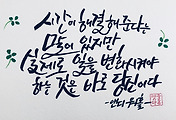 시간이 해결해준다는
말이 있지만
실제로 일을 변화시켜야
하는 것은 바로 당신이다